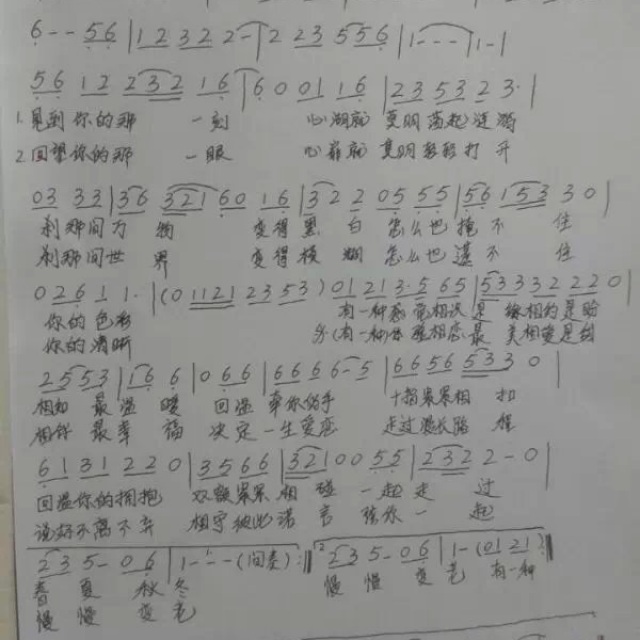 6 - - 5 6 | 1 2 3 2 2 2 - | 2 2 3 5 5 6 | 1 - - - | 1 - |
5 6 1 2 2 3 2 1 6 | 6 0 0 1 1 6 | 2 3 5 3 2 3 · |
1. 见到你的那 一刻 心湖就 莫明荡起涟漪
2. 回望你的那 一眼 心扉就 莫明轻轻打开
0 3 3 3 | 3 6 3 2 1 6 0 1 6 | 3 2 2 0 5 5 5 | 5 6 1 5 3 3 0 |
刹那间万物 变得黑白 怎么也掩不住
刹那间世界 变得模糊 怎么也遮不住
0 2 6 1 1 · | (0 1 1 2 1 2 3 5 3) 0 1 2 1 3 · 5 6 5 | 5 3 3 3 2 2 2 0 |
你的色彩 有一种感觉相识是 缘相约是
你的清晰 (有一种 相恋最 美相爱是
2 5 5 3 | 1 6 6 | 0 6 6 | 6 6 6 6 - 5 | 6 6 5 6 5 3 3 0 |
相知最温暖 回温牵你的手 十指紧紧相扣
相伴最幸福 决定一生 走过漫长路程
6 1 3 1 2 2 0 | 3 5 6 6 | 5 2 1 0 0 5 5 | 2 3 2 2 - 0 |
回温你的拥抱 双鬓紧紧相碰 一起走过
说好不离不弃 相守彼此诺言 陪你一起
2 3 5 - 0 6 | 1 - - - (间奏) :|| 2 3 5 - 0 6 | 1 - (0 1 2 1 :||
春夏秋冬 慢慢变老 有一种
慢慢变老